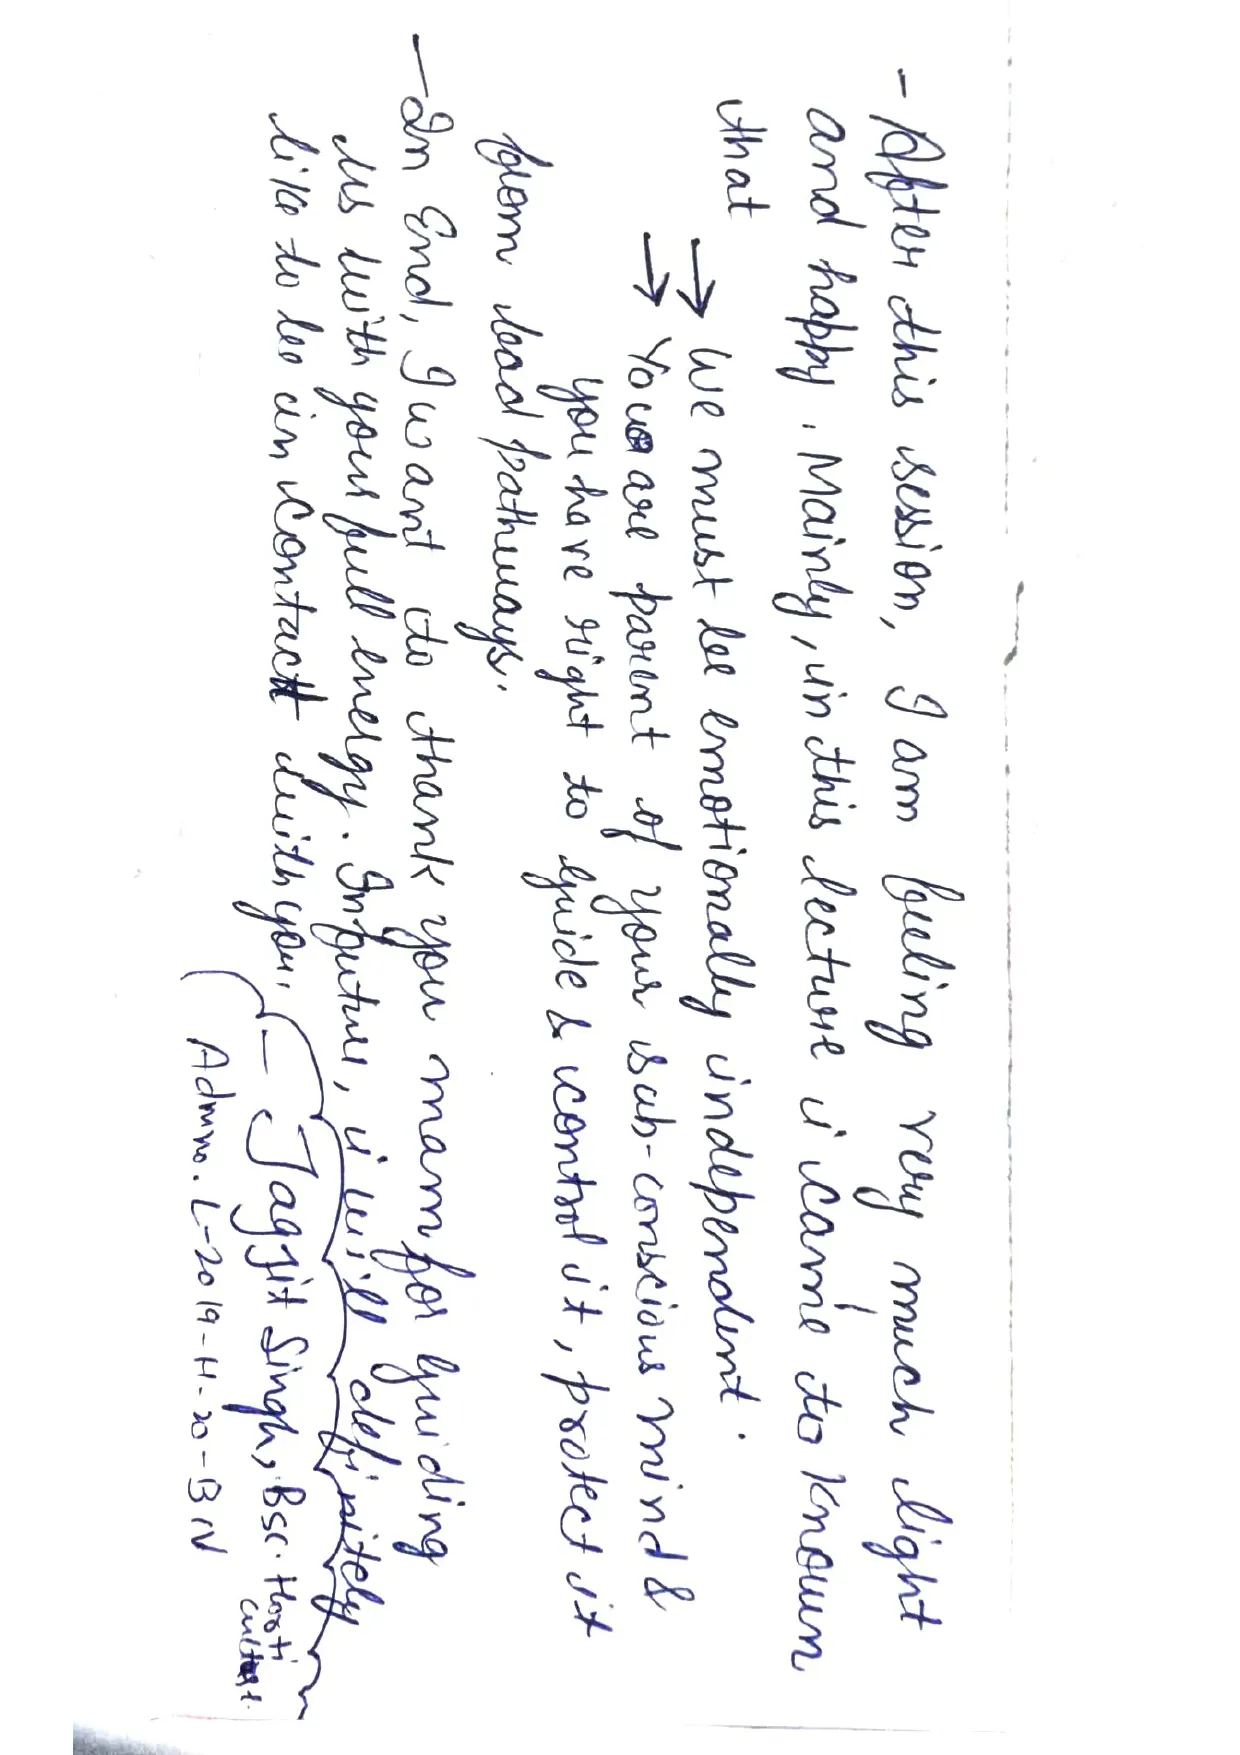 - After this session, I am feeling very much light
and happy. Mainly, in this lecture i came to known
that
→ We must be emotionally independent.
→ You are parent of your sub-conscious mind &
you have right to guide & control it, protect it
from bad pathways.
- In End, I want to thank you mam for guiding
us with your full energy. In future, i will definitely
like to be in contact with you.
- Jagjit Singh, Bsc. Horti
culture.
Admno. L-2019-H-20-BIV